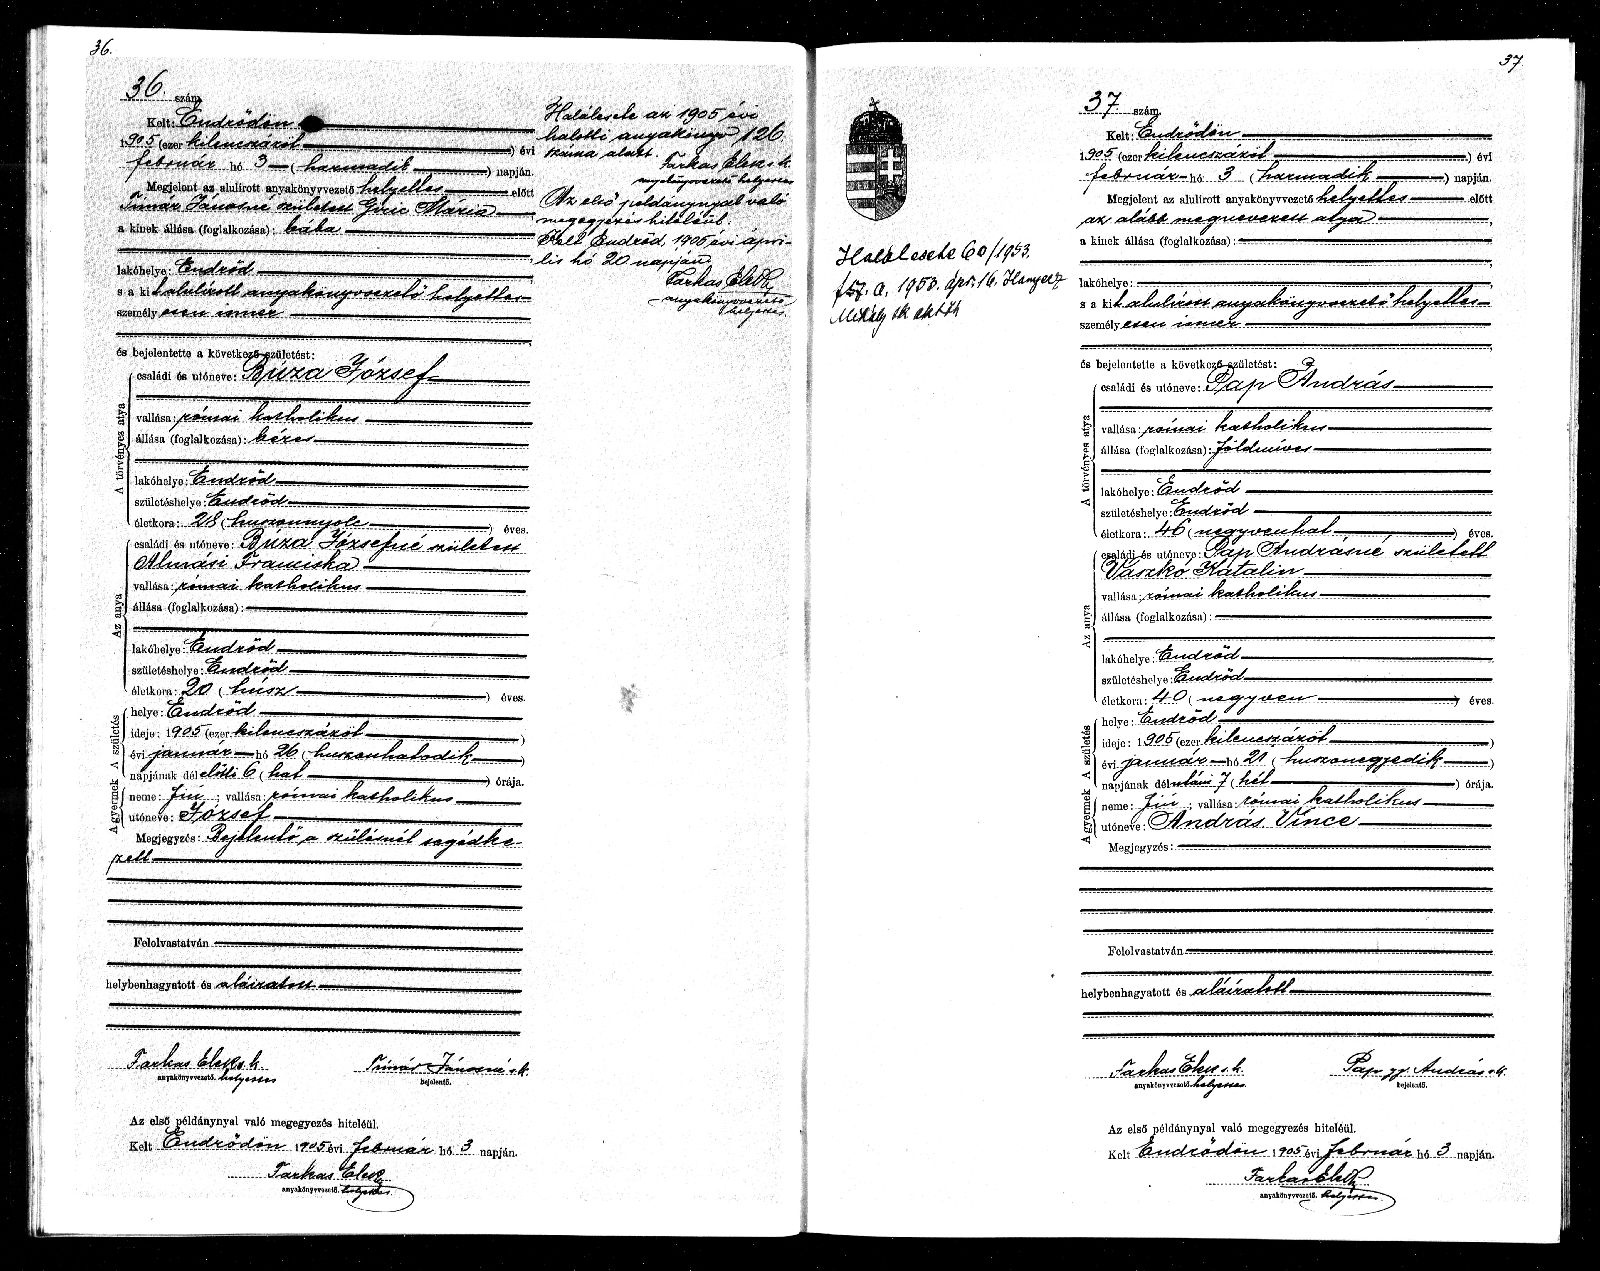 36.
36. szám.
Kelt: Endrődön
1905 (ezer kilencszázöt) évi
február hó 3 (harmadik) napján.
Megjelent az alulirott anyakönyvvezető helyettes előtt
Timár Jánosné született Giric Mária
a kinek állása (foglalkozása): bába
lakóhelye: Endrőd
s a kit alulírott anyakönyvvezető helyettes
személyesen ismer
és bejelentette a következő születést:
A törvényes atya
családi és utóneve: Buza József
vallása: római katholikus
állása (foglalkozása): béres
lakóhelye: Endrőd
születéshelye: Endrőd
életkora: 28 (huszonnyolc) éves.
Az anya
családi és utóneve: Buza Józsefné született
Almási Franciska
vallása: római katholikus
állása (foglalkozása):
lakóhelye: Endrőd
születéshelye: Endrőd
életkora: 20 (húsz) éves.
A születés
helye: Endrőd
ideje: 1905 (ezer kilencszázöt)
évi január hó 26 (huszonhatodik)
napjának délelőtti 6 (hat) órája.
A gyermek
neme: fiú; vallása: római katholikus
utóneve: József
Megjegyzés: Bejelentő a szülésnél segédke
zett
Felolvastatván
helybenhagyatott és aláiratott
Farkas Elek s.k. Timár Jánosné s.k.
anyakönyvvezető. helyettes bejelentő.
Az első példánynyal való megegyezés hiteléül.
Kelt Endrődön 1905 évi február hó 3 napján.
Farkas Elek
anyakönyvvezető. helyettes
Halálesete az 1905 évi
halotti anyakönyv 126
száma alatt.
Farkas Elek s.k.
anyakönyvvezető helyettes
Az első példánynyal való
megegyezés hiteléül.
Kelt Endrőd 1905 évi ápri-
lis hó 20 napján
Farkas Elek
anyakönyvvezető
helyettes.
37
Halálesete 60/1953.
f57. a. 1953. ápr. 16.
Mihály sk
37. szám.
Kelt: Endrődön
1905 (ezer kilencszázöt) évi
február hó 3 (harmadik) napján.
Megjelent az alulirott anyakönyvvezető helyettes előtt
az alább megnevezett atya
a kinek állása (foglalkozása):
lakóhelye:
s a kit alulírott anyakönyvvezető helyettes
személyesen ismer
és bejelentette a következő születést:
A törvényes atya
családi és utóneve: Pap András
vallása: római katholikus
állása (foglalkozása): földmíves
lakóhelye: Endrőd
születéshelye: Endrőd
életkora: 46 (negyvenhat) éves.
Az anya
családi és utóneve: Pap Andrásné született
Vaszkó Katalin
vallása: római katholikus
állása (foglalkozása):
lakóhelye: Endrőd
születéshelye: Endrőd
életkora: 40 (negyven) éves.
A születés
helye: Endrőd
ideje: 1905 (ezer kilencszázöt)
évi január hó 21 (huszonegyedik)
napjának délutáni 7 (hét) órája.
A gyermek
neme: fiú; vallása: római katholikus
utóneve: András Vince
Megjegyzés:
Felolvastatván
helybenhagyatott és aláiratott
Farkas Elek s.k. Pap gy. András s.k.
anyakönyvvezető. helyettes bejelentő.
Az első példánynyal való megegyezés hiteléül.
Kelt Endrődön 1905 évi február hó 3 napján.
Farkas Elek
anyakönyvvezető. helyettes